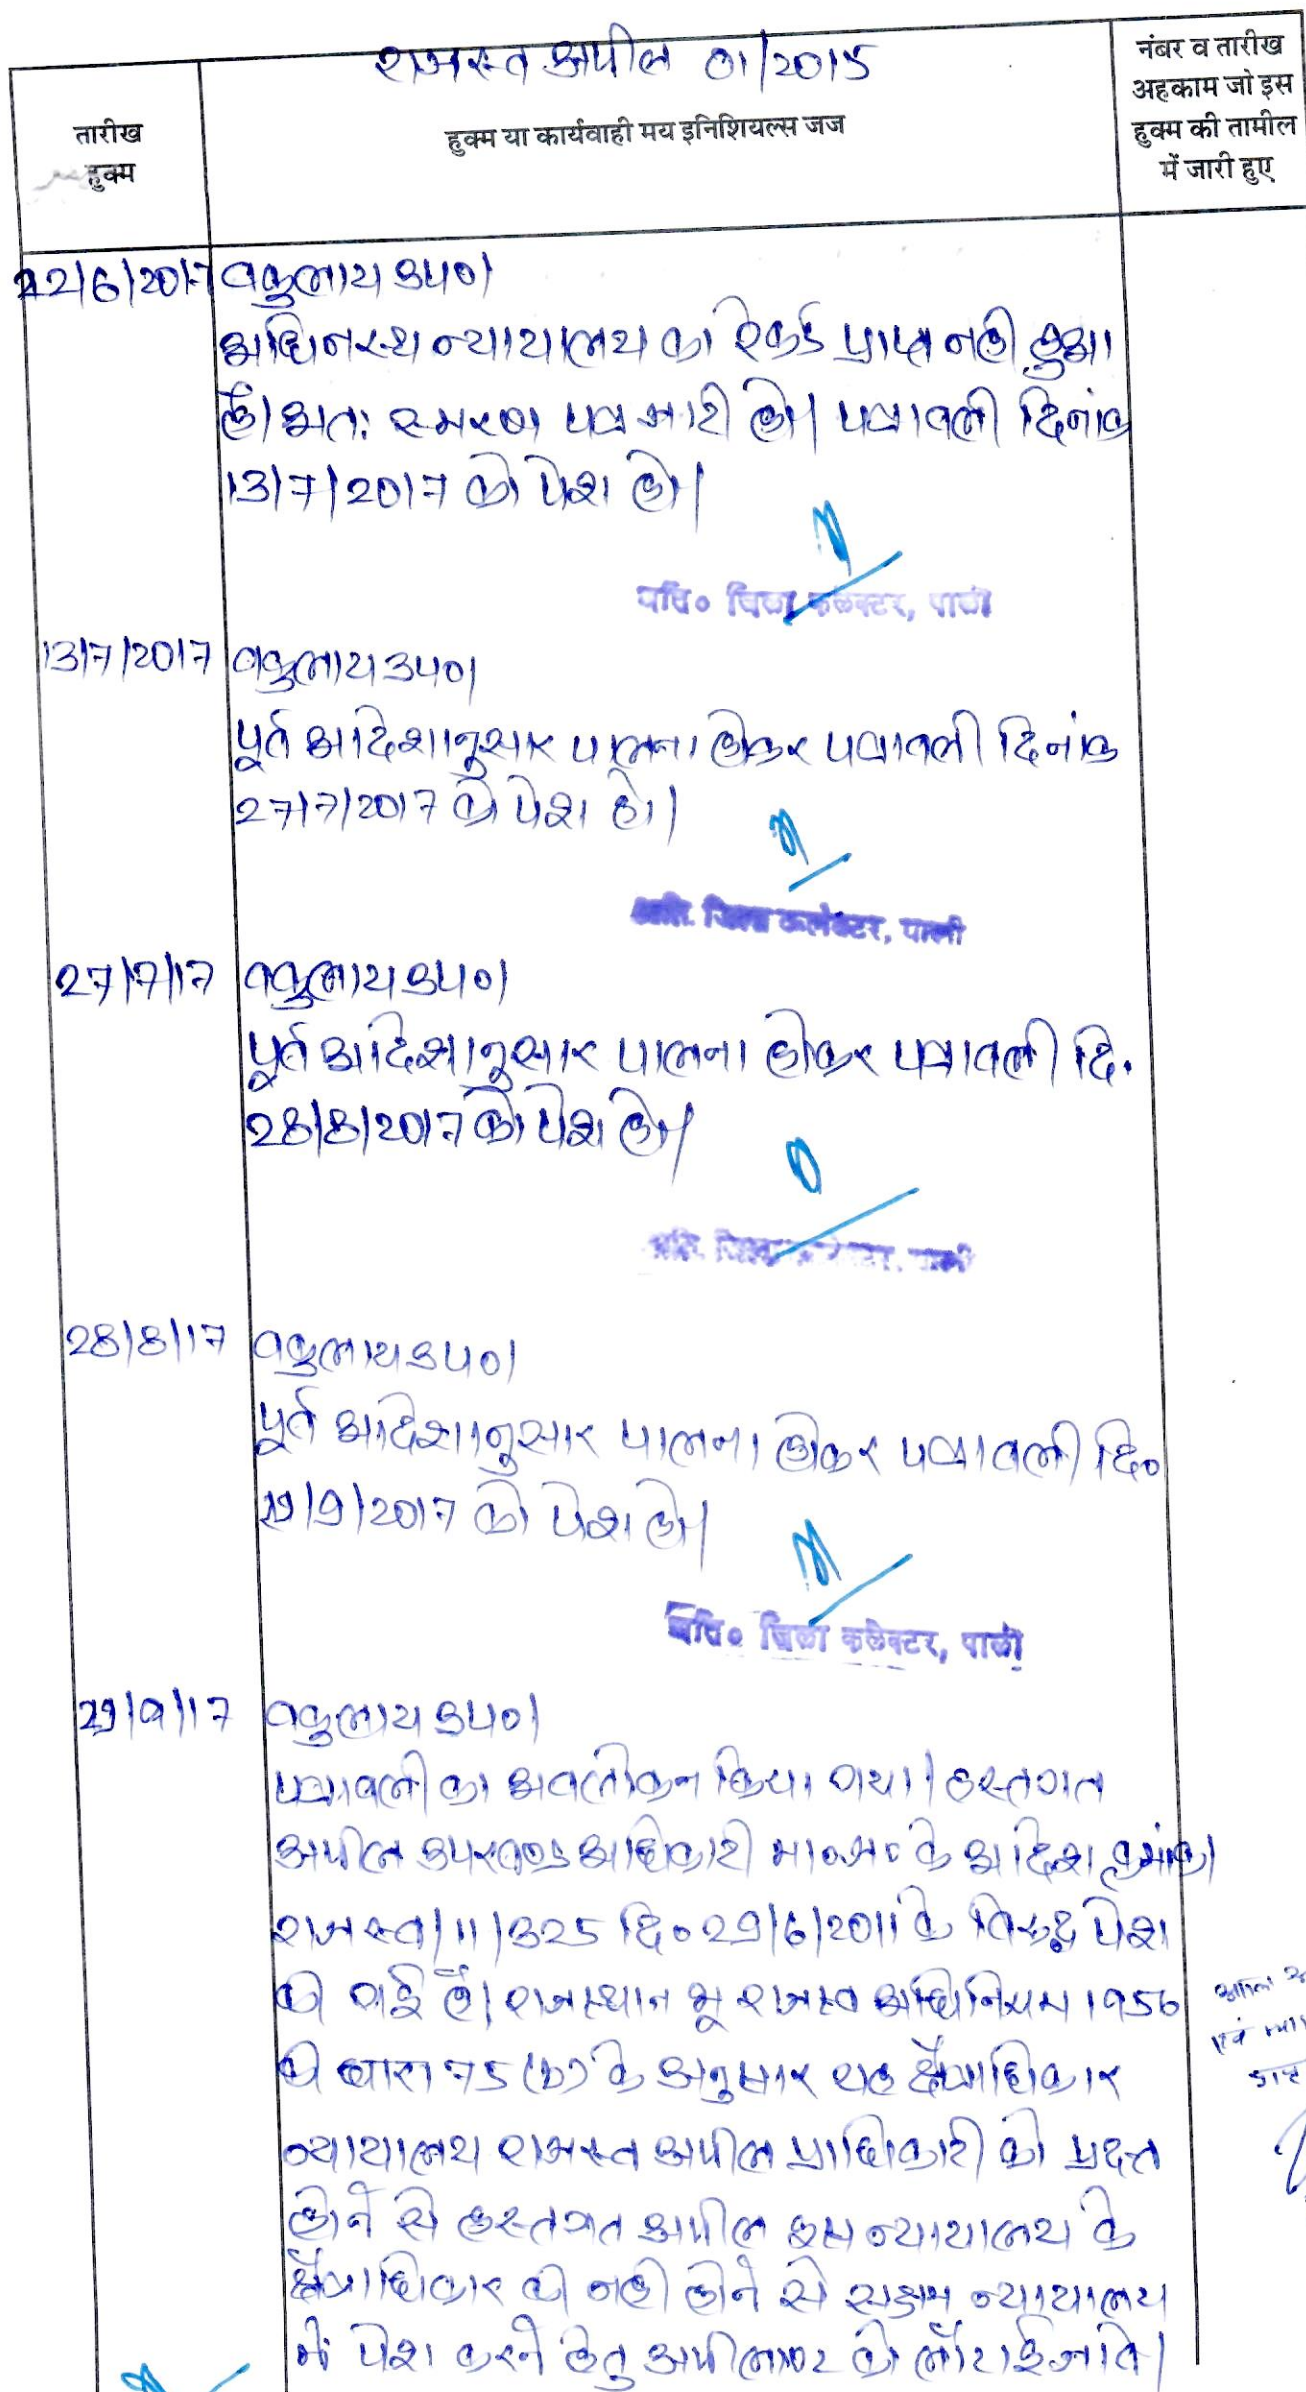 राजस्व अपील 01/2015
तारीख
हुक्म
हुक्म या कार्यवाही मय इनिशियल्स जज
नंबर व तारीख
अहकाम जो इस
हुक्म की तामील
में जारी हुए
22/6/2017 वकुलाय उप0।
अधिनस्थ न्यायालय का रेकर्ड प्राप्त नही हुआ
है। अतः स्मरण पत्र जारी हो। पत्रावली दिनांक
13/7/2017 को पेश हो।
अति० जिला कलेक्टर, पाली
13/7/2017 वकुलाय उप0।
पूर्व आदेशानुसार पालना होकर पत्रावली दिनांक
27/7/2017 को पेश हो।
अति. जिला कलेक्टर, पाली
27/7/17 वकुलाय उप0।
पूर्व आदेशानुसार पालना होकर पत्रावली दि.
28/8/2017 को पेश हो।
अति. जिला कलेक्टर, पाली
28/8/17 वकुलाय उप0।
पूर्व आदेशानुसार पालना होकर पत्रावली दि०
29/9/2017 को पेश हो।
अति० जिला कलेक्टर, पाली
29/9/17 वकुलाय उप0।
पत्रावली का अवलोकन किया गया। हस्तगत
अपील उपखण्ड अधिकारी मा०ज० के आदेश क्रमांक
राजस्व/11/325 दि० 29/6/2011 के विरुद्ध पेश
की गई है। राजस्थान भू राजस्व अधिनियम 1956
की धारा 75 (b) के अनुसार यह क्षैत्राधिकार
न्यायालय राजस्व अपील प्राधिकारी को प्रदत्त
होने से हस्तगत अपील इस न्यायालय के
क्षैत्राधिकार की नही होने से सक्षम न्यायालय
में पेश करने हेतु अपीलाण्ट को लौटाई जावे।
एवं